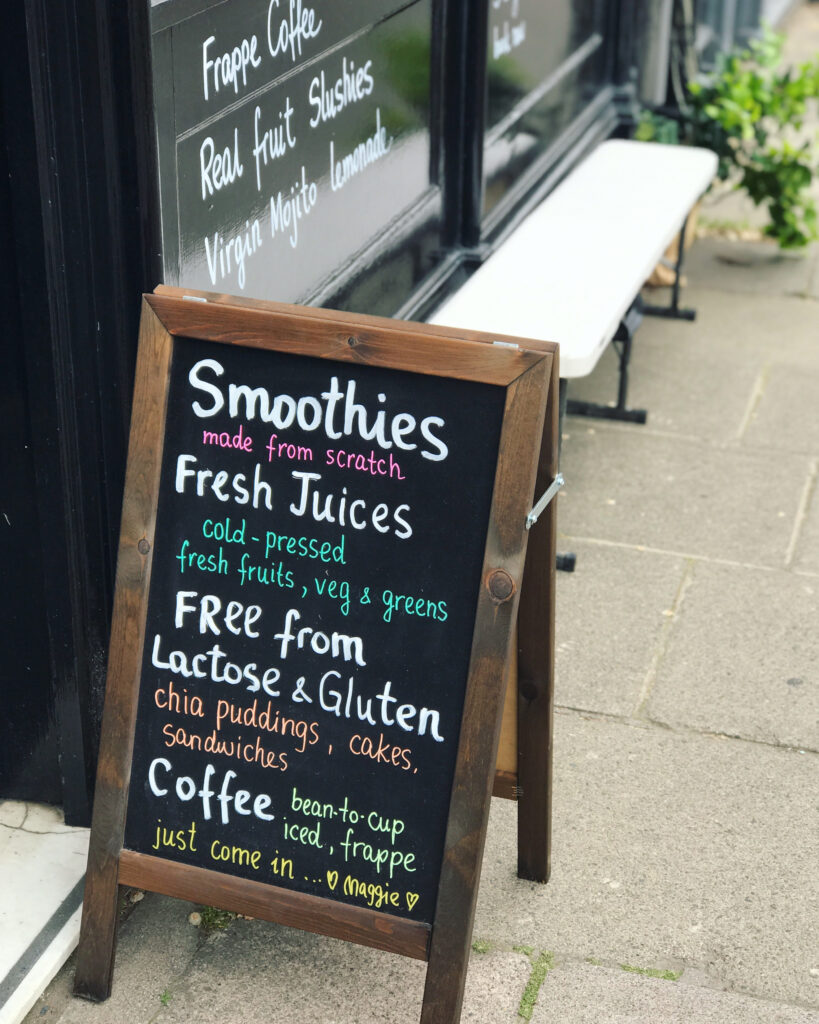 Frappe Coffee
Real fruit Slushies
Virgin Mojito lemonade
Smoothies
made from scratch
Fresh Juices
cold-pressed
fresh fruits, veg & greens
FRee from
Lactose & Gluten
chia puddings, cakes,
sandwiches
Coffee bean-to-cup
iced, frappe
just come in ... ♡ Maggie ♡